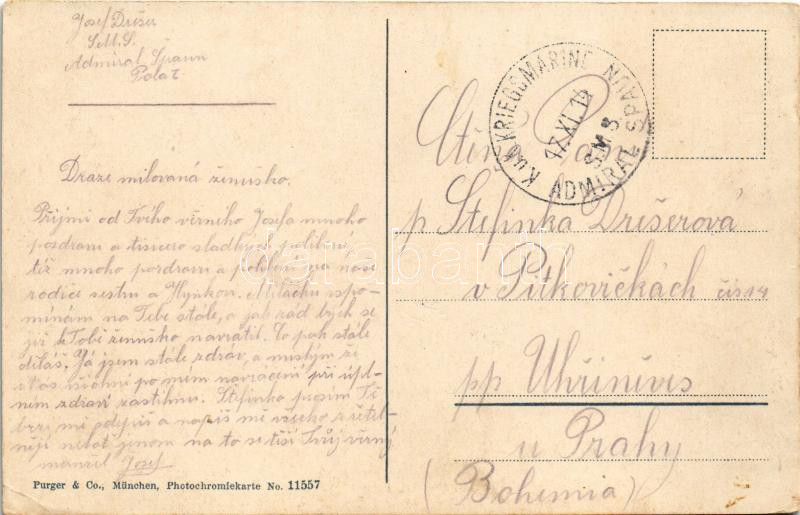 Josef Drešer
S.M.S.
Admiral Spaun
Pola
Draze milovaná ženuško.
Přijmi od Tvého věrného Josefa mnoho
pozdravu a tisícero sladkých políbení,
též mnoho pozdravu a políbení na naše
rodiče sestru a Hynkou. Miláčku vzpo-
mínám na Tebe stále, a jak rád bych se
již k Tobě ženuško navrátil. Co pak stále
děláš. Já jsem stále zdráv, a myslím že
i Vás všechny po mém navrácení při úpl-
ném zdraví zastihnu. Štefinko prosím Tě
brzy mě odepiš a napiš mě všecko zřetel-
něji neboť jenom na to se těší Tvůj věrný
manžel Josef
Purger & Co., München, Photochromiekarte No. 11557
K.u.K. KRIEGSMARINE
17.XI.14
S.M.S.
ADMIRAL SPAUN
Ctěná Paní
p Štefinka Drešerová
v Pitkovičkách čís 14
pp Uhřiněves
u Prahy
(Bohemia)
darabanth